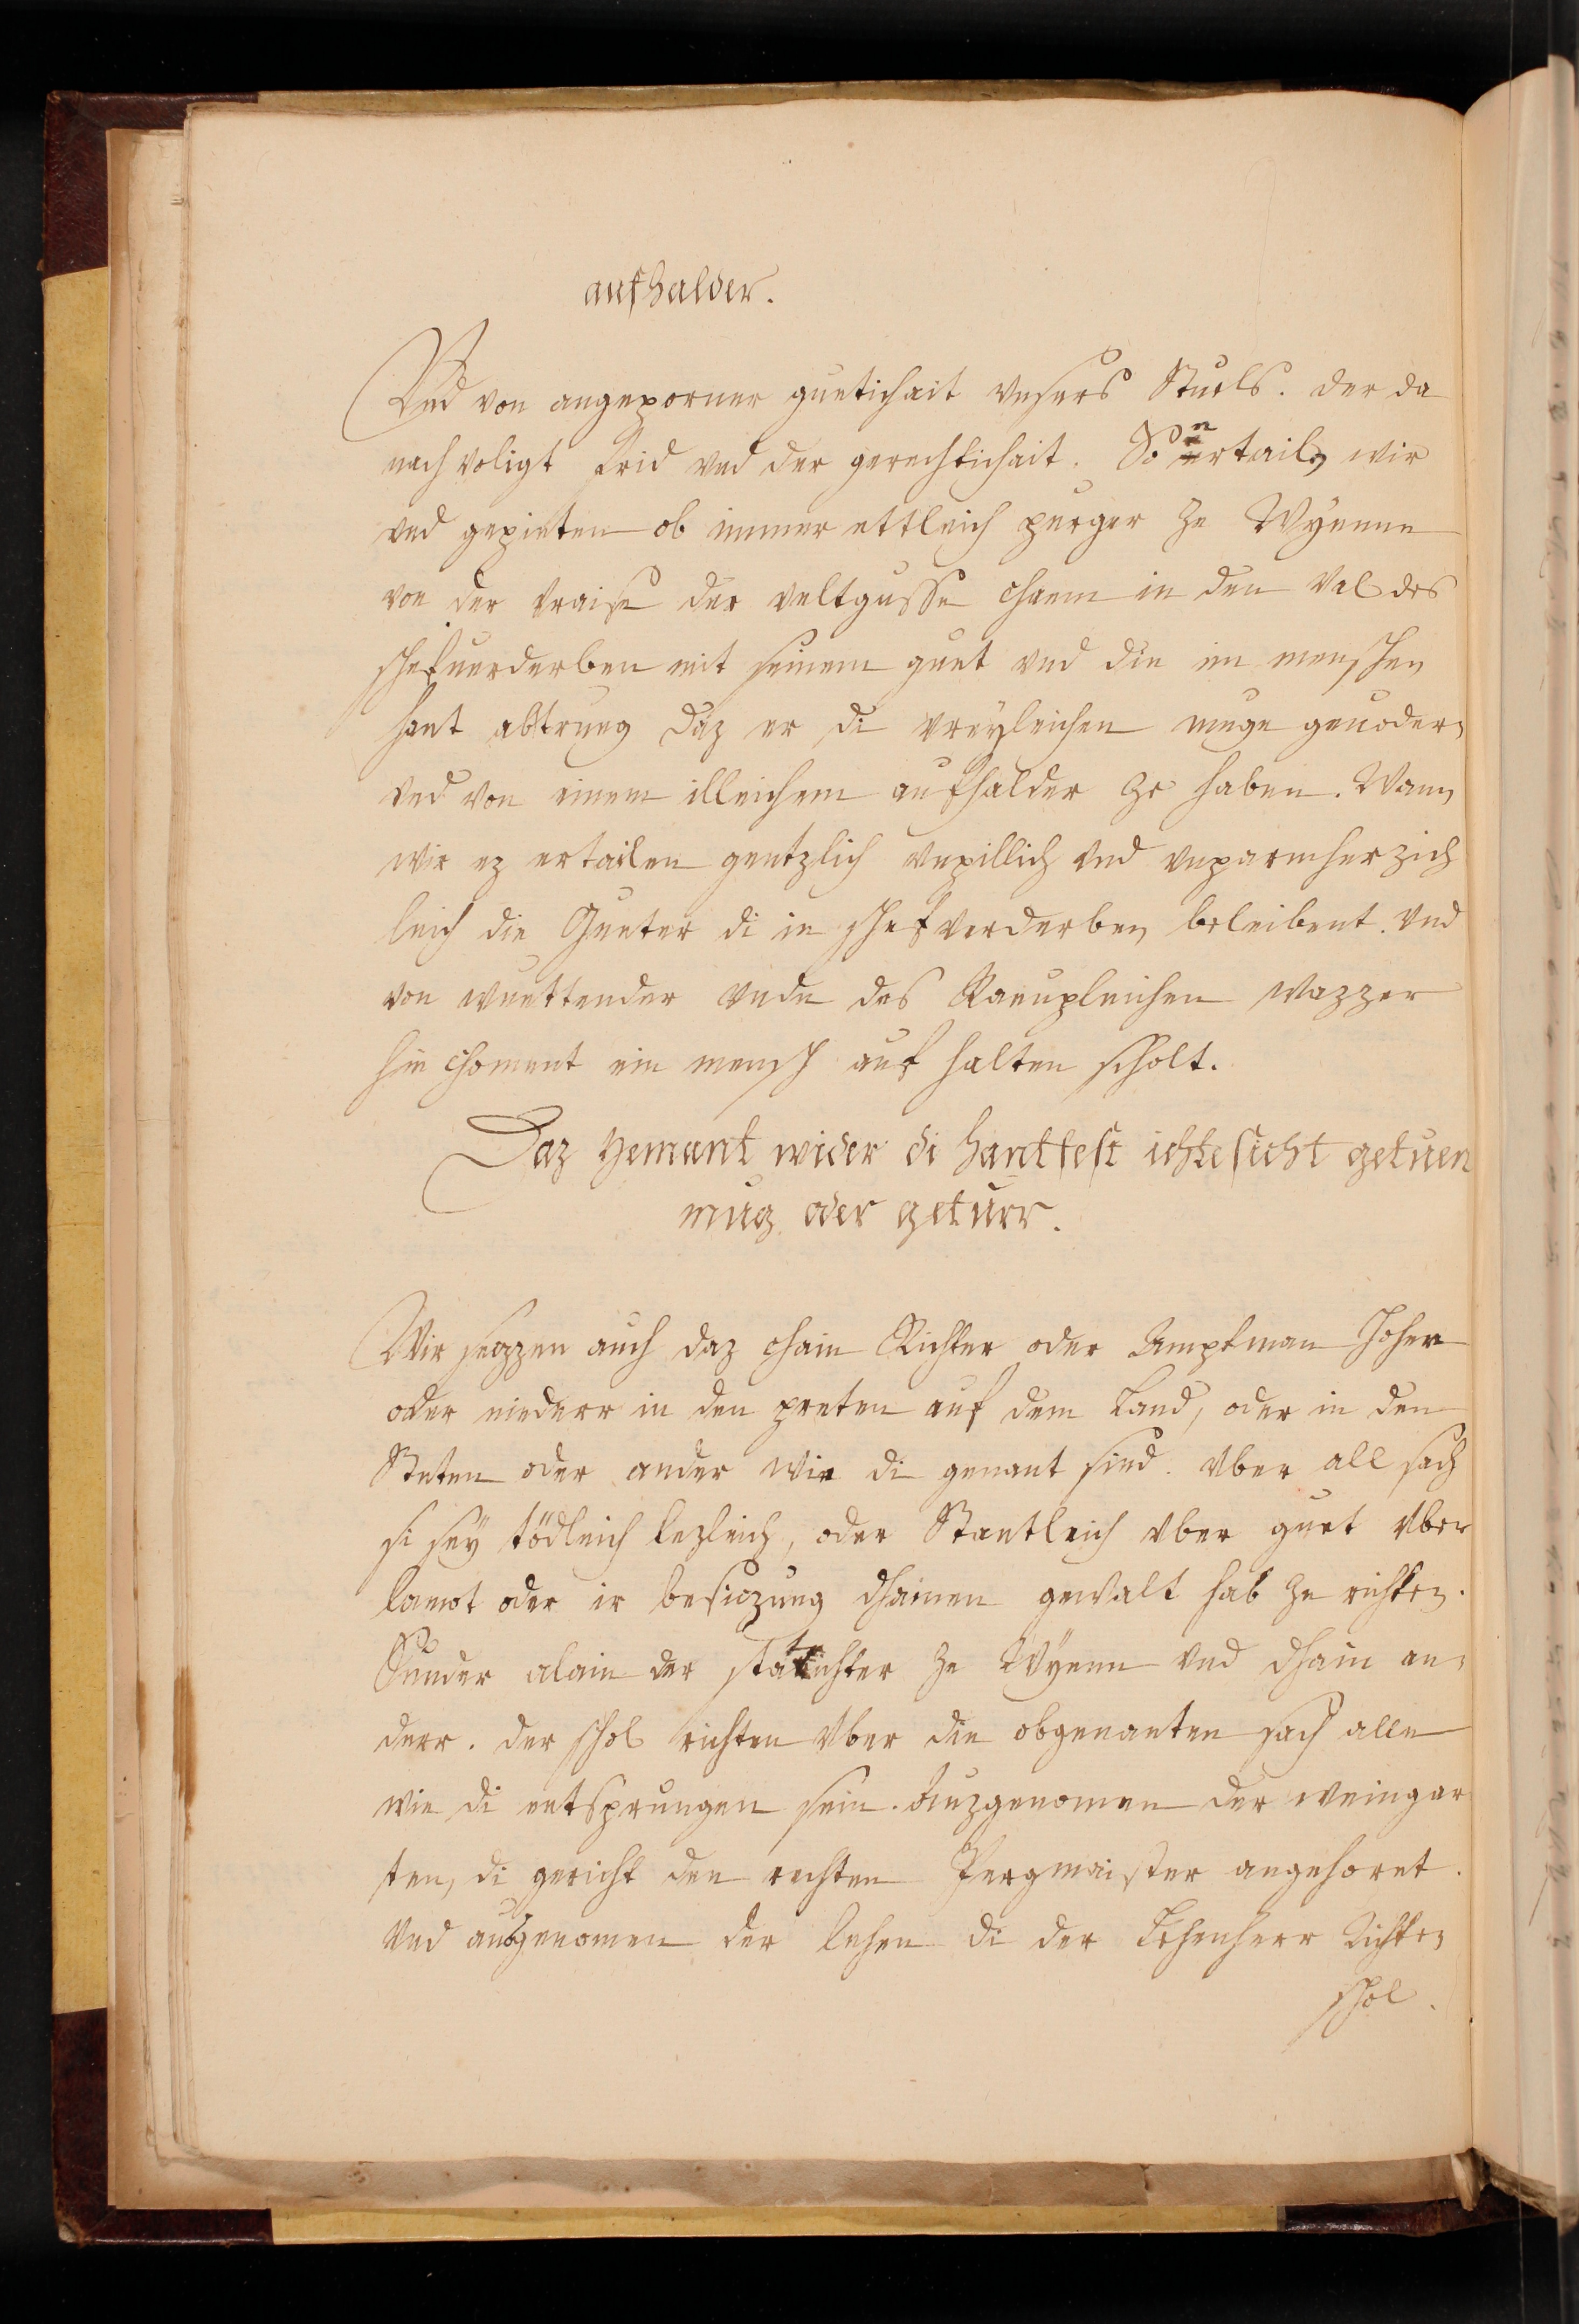 aufhalder.
Vnd von angeporner guetichait vnsers Stuels. der da
nach voligt frid vnd der gerechtichait. So ertailn wir
vnd gepieten ob immer ettleich purger ze Wyenne
von der vraise der veltgusse chaem in den Val des
schefuerderben mit seinem guet vnd die im menschen
hant abtrueg daz er di vreyleichen muge geuoder,
vnd von einem illeichem aufhalder ze haben. Wann
wir ez ertailen gentzlich vnpillich vnd vnparmherzich
leich die Gueter di in schefverderben beleibent. vnd
von wuettender vnde des Raupleichen wazzer
hin choment ein mensch auf halten scholt.
Daz yemant wider di hantfest ichtesicht getuen
mug oder geturr.
Wir seczzen auch daz chain Richter oder Amptman hoher
oder niderr in den preten auf dem Land, oder in den
Steten oder ander wie di genant sind. vber all sach
si sey tödleich lezleich, oder Stantleich vber guet vber
laewt oder ir besiczung dhainen gewalt hab ze richten.
Sunder alain der statrichter ze Wyenn vnd dhain an,
derr. der schol richten vber die obgenanten sach alle
wie di entsprungen sein. Auzgenomen der weingar
ten, di gericht den rechten Pergmaister angehoret.
Vnd ausgenomen der lehen di der Lehenherr Richten
schol.